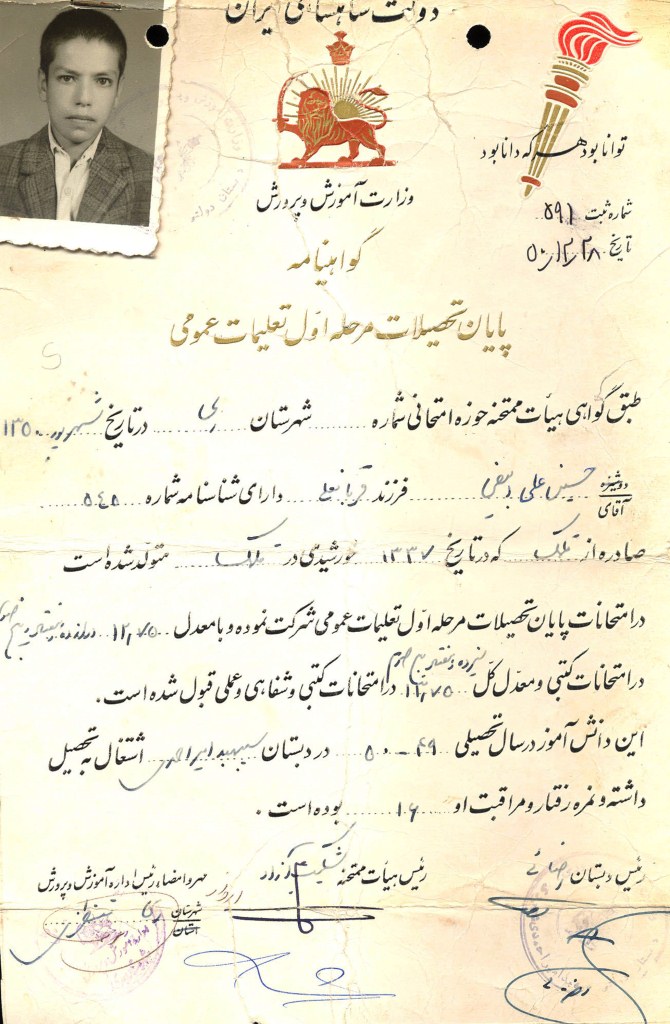 دولت شاهنشاهی ایران
توانا بود هر که دانا بود
وزارت آموزش و پرورش
شماره ثبت ۵۹۱
تاریخ ۵۰/۲/۲۸
گواهینامه
پایان تحصیلات مرحله اوّل تعلیمات عمومی
طبق گواهی هیأت ممتحنه حوزه امتحانی شماره ........ شهرستان ری در تاریخ شهریور ۱۳۵۰
دوشیزه
آقای حسین علی فرزند قربانعلی دارای شناسنامه شماره ۵۴۵
صادره از تلک که در تاریخ ۱۳۳۷ خورشیدی در تلک متولّد شده است
در امتحانات پایان تحصیلات مرحله اوّل تعلیمات عمومی شرکت نموده و با معدل ۱۲,۷۵ دوازده و هفتاد و پنج صدم
در امتحانات کتبی و معدّل کلّ ۱۳,۷۵ سیزده و هفتاد و پنج صدم در امتحانات کتبی و شفاهی و عملی قبول شده است.
این دانش آموز در سال تحصیلی ۴۹-۵۰ در دبستان سپهبد امیراحمدی اشتغال به تحصیل
داشته و نمره رفتار و مراقبت او ۱۶ بوده است.
رئیس دبستان رضائی
رئیس هیأت ممتحنه
مهر و امضاء رئیس اداره آموزش و پرورش
شهرستان ری
استان